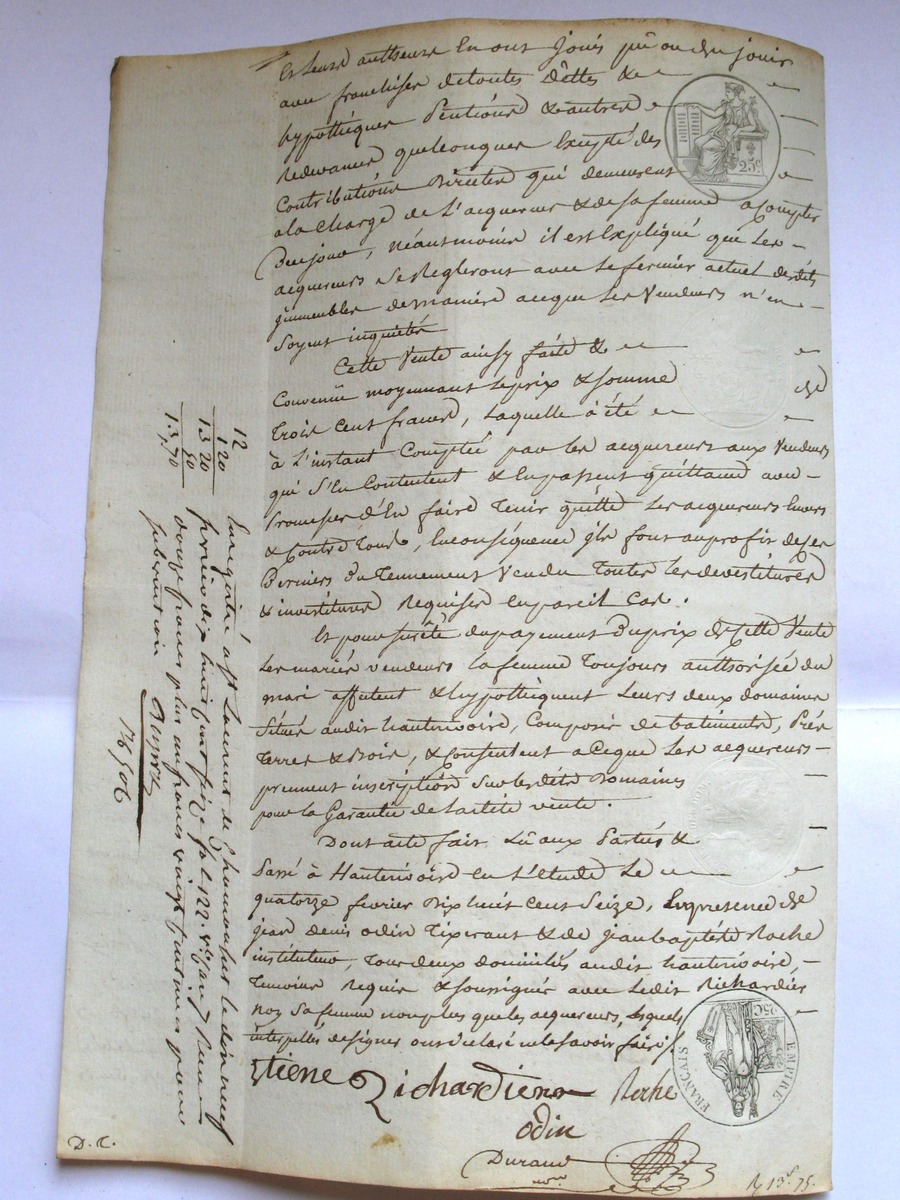 et leurs autheurs en ont joui pû ou du jouir
avec franchise de toutes dêttes &
hypothéques Pentions & autres
Redevances quelconques Excepté des
Contributions Directes qui demeurent
a la charge de L'acquereur & de sa femme a Compter
De ce jour, néantmoins il est Expliqué que les
acquereurs se Regleront avec le fermier actuel desdits
jmmeubles de maniere aceque les Vendeurs n'en
Soyent inquiétés
Cette Vente ainsy faite &
Convenüe moyennant le prix & somme de
Trois Cent francs, Laquelle à été
à L'instant Comptée par les acquereurs aux Vendeurs
qui S'En Contentent & En passent quittance avec
Promesse d'En faire Tenir quitte les acquereurs Envers
& Contre Tous, En conséquence jls font au profit de ces
Derniers du Tennement Vendu Toutes les devestitures
& investitures Requises en pareil Cas.
Et pour sureté du payement Du prix de Cette Vente
Les mariés vendeurs la femme Toujours authorisée du
mari affectent & hypothéquent Leurs deux domaines
Situés audit hauterivoire, Composés de batiments, Prés
Terres & Bois, & Consentent a Ceque Les acquereurs
prennent inscription Sur lesdits Domaines
pour la Garantie de ladite vente.
Dont acte fait Lû aux Parties &
Passé à Hauterivoire En L'étude Le
quatorze fevrier Dix huit Cent Seize, En presence de
jean denis odin Tixerant & de jean baptiste Roche
instituteur, Tous deux domiciliés audit hauterivoire,
Temoins Requis & soussignés avec Ledit Richardier
non Sa femme non plus que les acquereurs, lesquels
interpellés de signer ont déclaré ne le savoir faire
Etiene Richardier Roche
odin
Durand
nore
D.C.
R 13f 75.
25c.
25C
EMPIRE FRANÇAIS
12
1 20
13 20
50
13,70
Enregistré à St Laurent de Chamousset le dix neuf
fevrier dix huit Cent Seize fol 122 vo Reçu
douze francs plus un franc vingt centimes pour
subvention